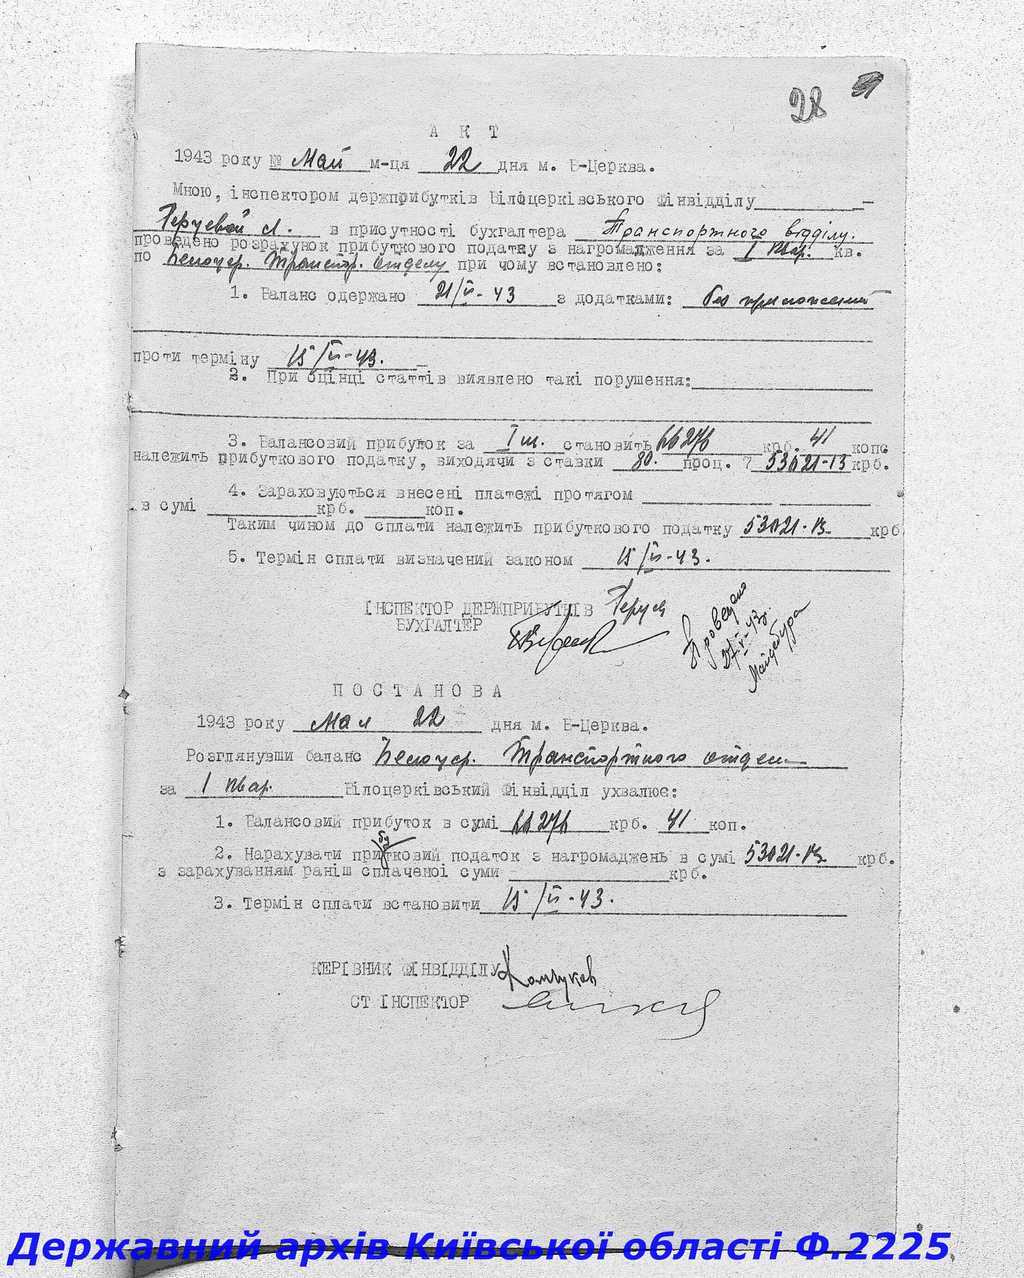 28
А К Т
1943 року № Май м-ця 22 дня м. Б-Церква.
Мною, інспектором держприбутків Білоцерківського Фінвідділу
в присутності бухгалтера Транспортного відділу.
проведено розрахунок прибуткового податку з нагромадження за I квар. кв.
по Белоцер. Транспор. отделу при чому встановлено:
1. Баланс одержано 21/V-43 з додатками: без приложений
проти терміну 15/V-43.
2. При оцінці статтів виявлено такі порушення:
3. Балансовий прибуток за I становить 66276 крб. 41 копс
належить прибуткового податку, виходячи з ставки 80. проц. 7 53021-13 крб.
4. Зараховуються внесені платежі протягом
в сумі крб. коп.
Таким чином до сплати належить прибуткового податку 53021-13 крб
5. Термін сплати визначений законом 15/V-43.
ІНСПЕКТОР ДЕРЖПРИБУТКІВ
БУХГАЛТЕР
Проведено
27/V-43р.
Майдебура
П О С Т А Н О В А
1943 року Мая 22 дня м. Б-Церква.
Розглянувши баланс Белоцер. Транспортного отдел
за I квар. Білоцерківський Фінвідділ ухвалює:
1. Балансовий прибуток в сумі 66276 крб. 41 коп.
2. Нарахувати прибутковий податок з нагромаджень в сумі 53021-13 крб.
з зарахуванням раніш сплаченої суми крб.
3. Термін сплати встановити 15/V-43.
КЕРІВНИК ФІНВІДДІЛУ
СТ ІНСПЕКТОР
Державний архів Київської області Ф.2225